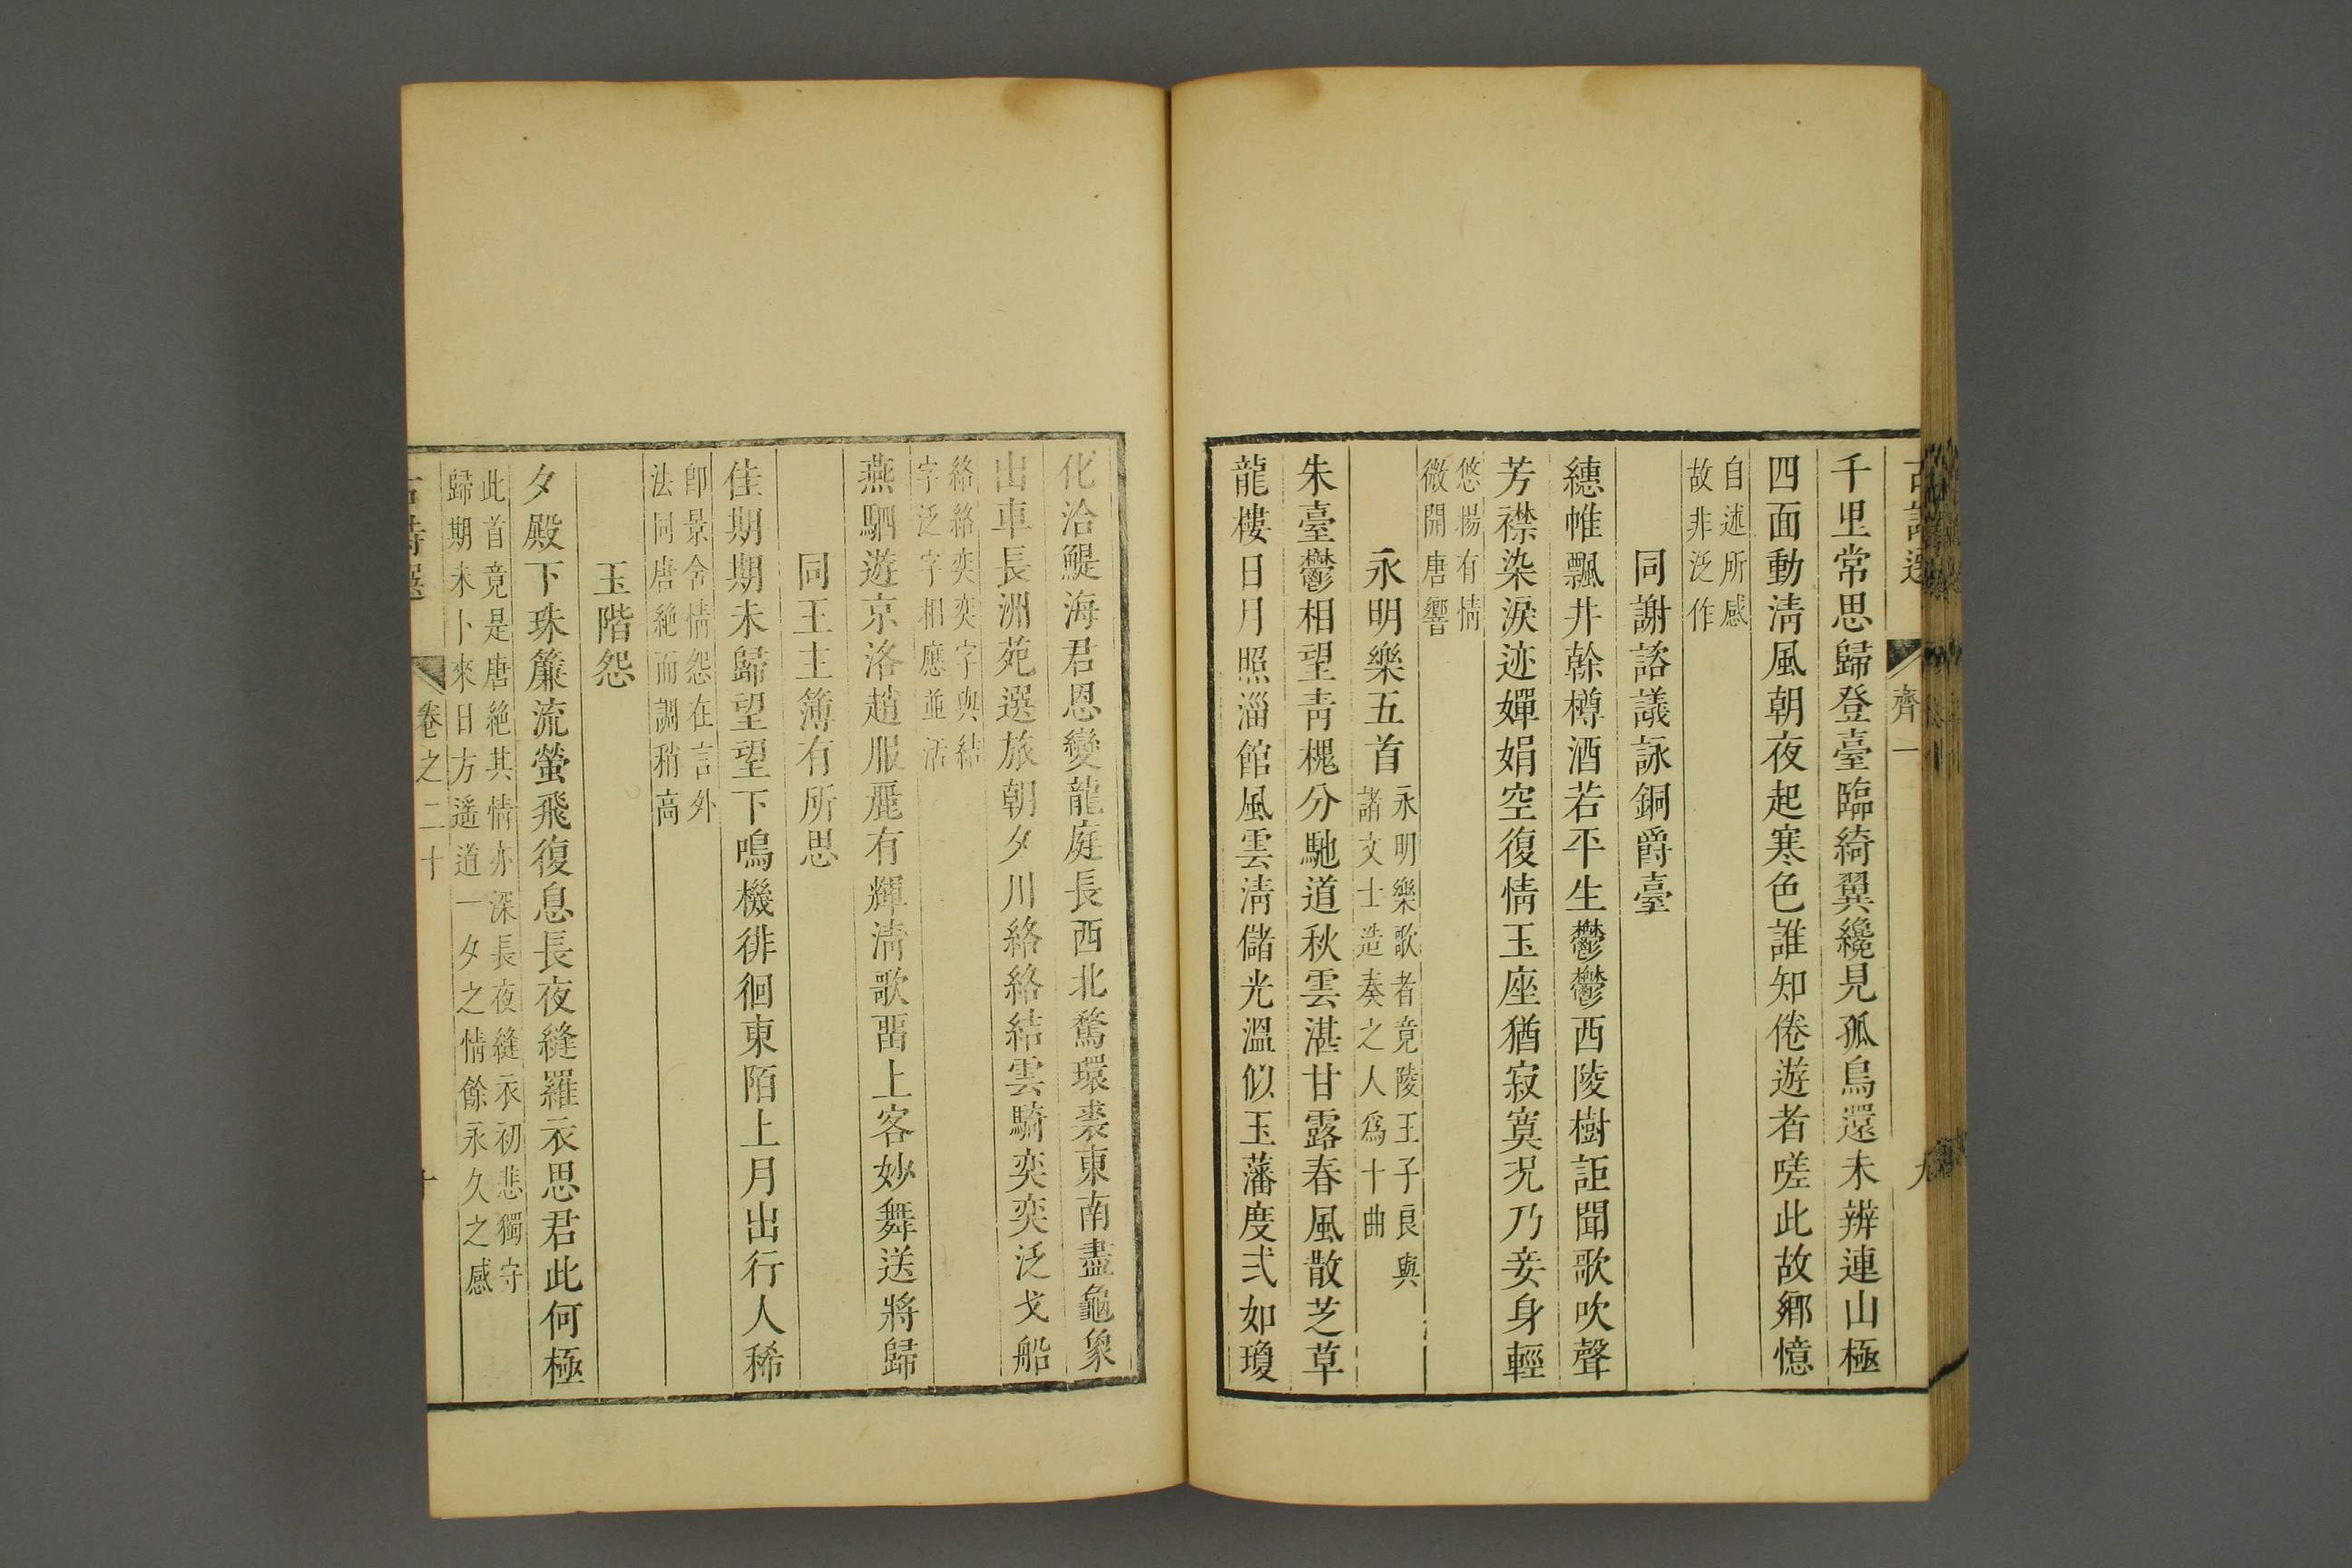 古詩選 齊一 九
千里常思歸登臺臨綺翼纔見孤鳥還未辨連山極
四面動淸風朝夜起寒色誰知倦遊者嗟此故鄉憶
自述所感
故非泛作
同謝諮議詠銅爵臺
繐帷飄井幹樽酒若平生鬱鬱西陵樹詎聞歌吹聲
芳襟染淚迹嬋娟空復情玉座猶寂寞況乃妾身輕
悠揚有情
微開唐響
永明樂五首
永明樂歌者竟陵王子良與
諸文士造奏之人爲十曲
朱臺鬱相望靑槐分馳道秋雲湛甘露春風散芝草
龍樓日月照淄館風雲淸儲光溫似玉藩度式如瓊
化洽鯷海君恩變龍庭長西北騖環裘東南盡龜象
出車長洲苑選旅朝夕川絡絡結雲騎奕奕泛戈船
絡絡奕奕字與結
字泛字相應並活
燕駟遊京洛趙服麗有輝淸歌畱上客妙舞送將歸
同王主簿有所思
佳期期未歸望望下鳴機徘徊東陌上月出行人稀
卽景含情怨在言外
法同唐絶而調稍高
玉階怨
夕殿下珠簾流螢飛復息長夜縫羅衣思君此何極
此首竟是唐絶其情亦深長夜縫衣初悲獨守
歸期未卜來日方遙道一夕之情餘永久之感
古詩選 卷之二十 十